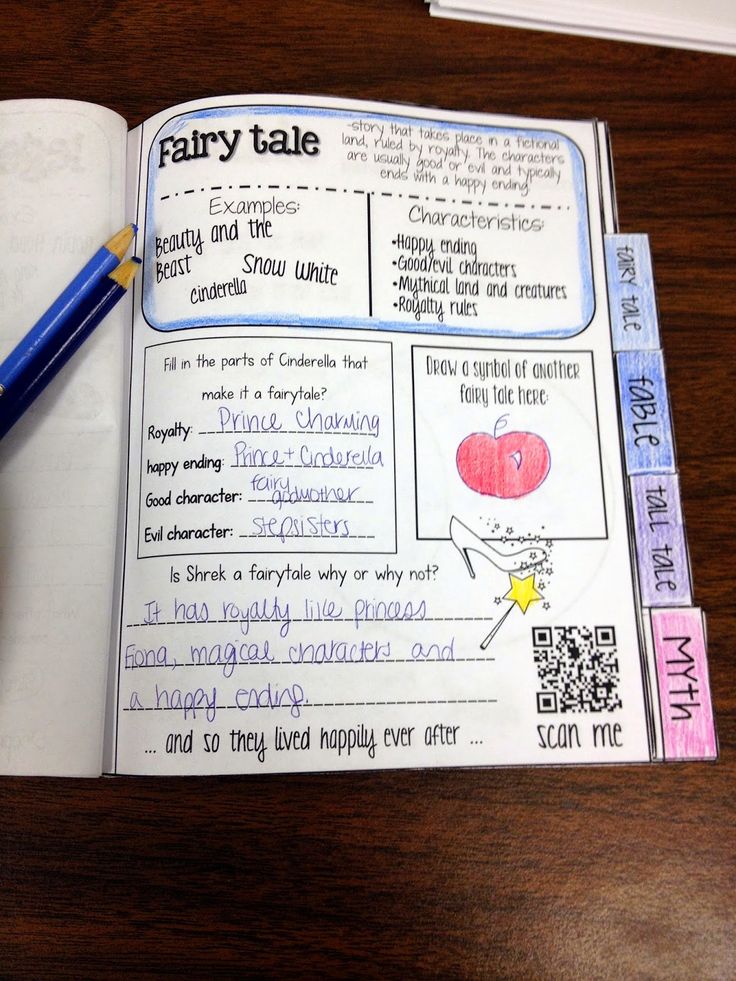 Fairy tale
-story that takes place in a fictional
land, ruled by royalty. The characters
are usually good or evil and typically
ends with a happy ending.
Examples:
Beauty and the
Beast
Snow White
cinderella
Characteristics:
•Happy ending
•Good/evil characters
•Mythical land and creatures
•Royalty rules
Fill in the parts of Cinderella that
make it a fairytale?
Royalty: Prince Charming
happy ending: Prince + Cinderella
Good character: fairy godmother
Evil character: stepsisters
Draw a symbol of another
fairy tale here:
Is Shrek a fairytale why or why not?
It has royalty like princess
Fiona, magical characters and
a happy ending.
... and so they lived happily ever after ...
scan me
FAIRY TALE
fable
tall tale
Myth